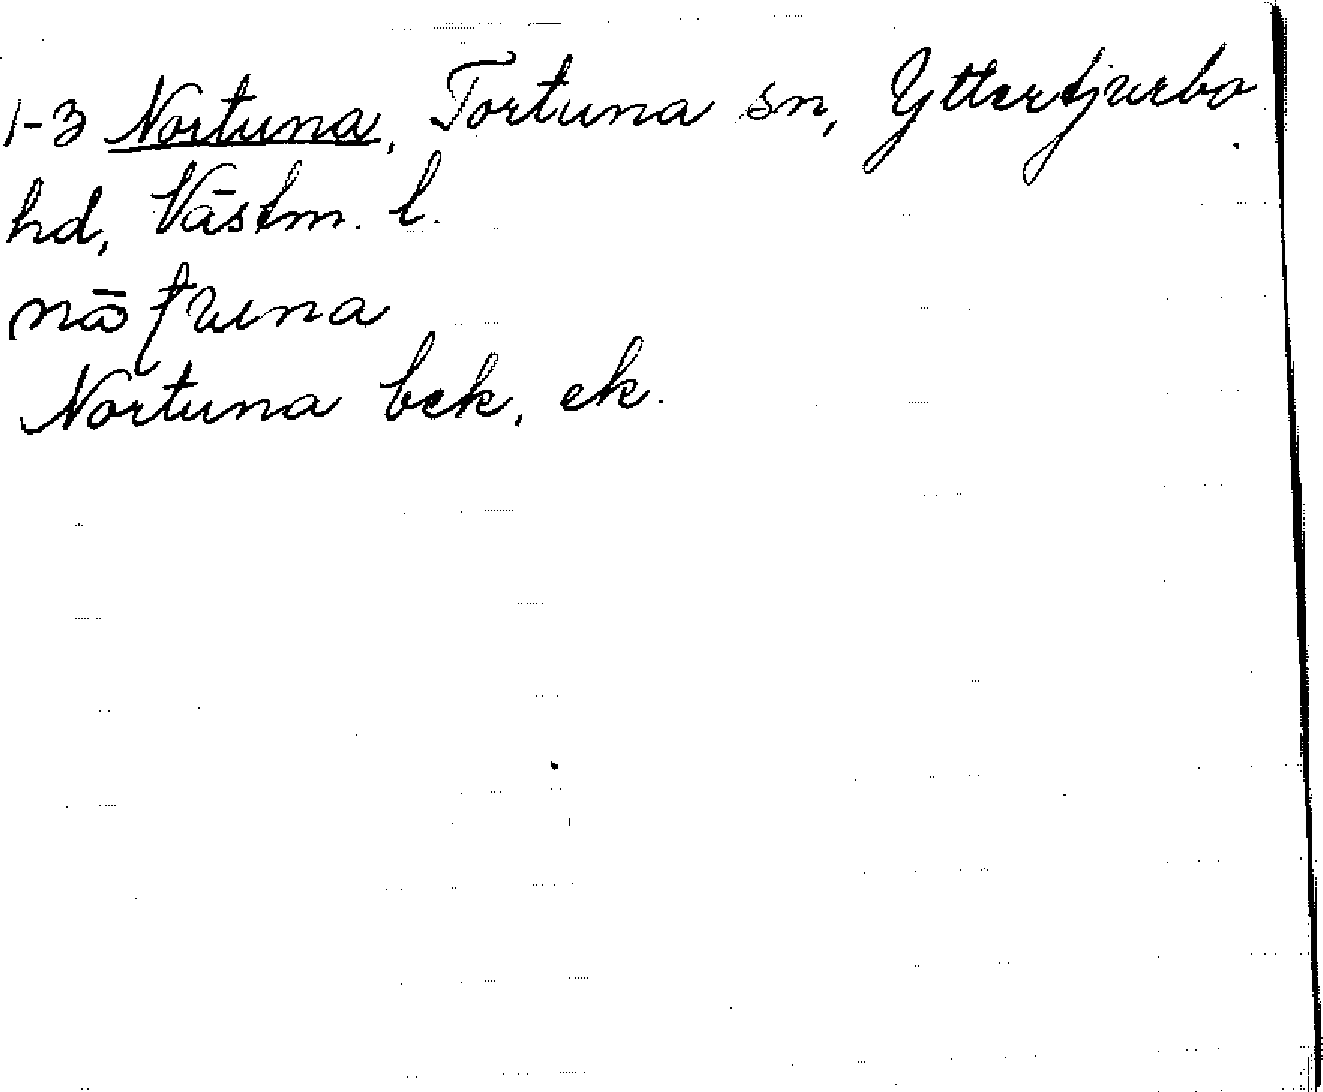 1-3 Nortuna, Tortuna sn, Yttertjurbo
hd, Västm. l.
Nortuna bek, ek.